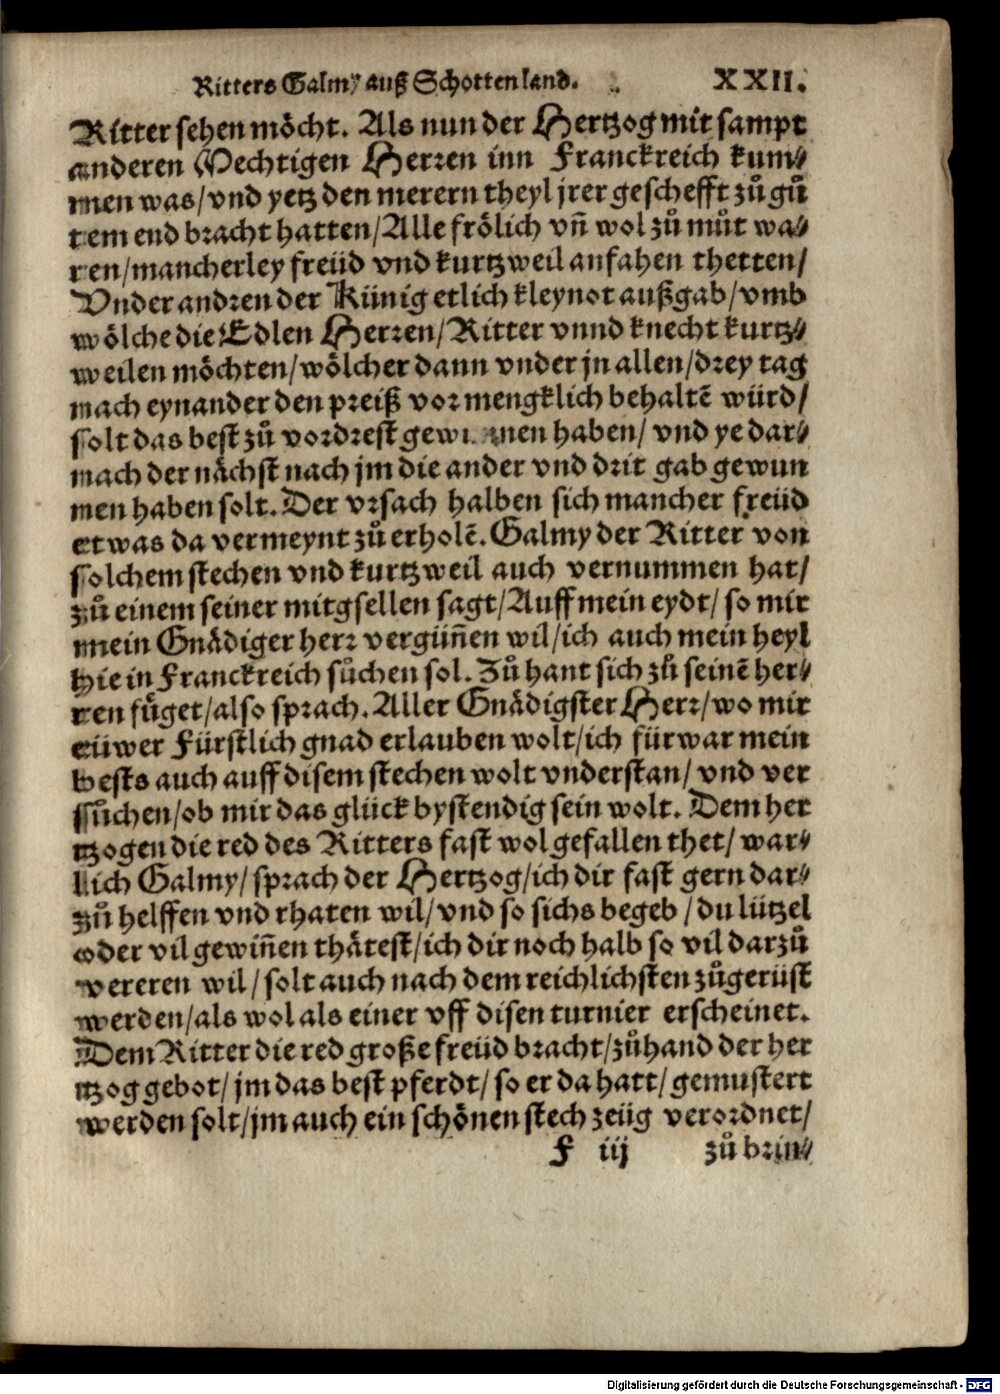 Ritters Galmy auß Schottenland. XXII.
Ritter sehen möcht. Als nun der Hertzog mit sampt
anderen Mechtigen Herren inn Franckreich kum⸗
men was/vnd yetz den merern theyl jrer geschefft zůgů
tem end bracht hatten/Alle frölich vn̄ wol zů můt wa⸗
ren/mancherley freüd vnd kurtzweil anfahen thetten/
Vnder andren der Künig etlich kleynot außgab/vmb
wölche die Edlen Herren/Ritter vnnd knecht kurtz⸗
weilen möchten/wölcher dann vnder jn allen/drey tag
nach eynander den preiß vor mengklich behaltē würd/
solt das best zů vordrest gewunnen haben/vnd ye dar⸗
nach der nächst nach jm die ander vnd drit gab gewun
nen haben solt. Der vrsach halben sich mancher freüd
etwas da vermeynt zů erholē. Galmy der Ritter von
solchem stechen vnd kurtzweil auch vernummen hat/
zů einem seiner mitgsellen sagt/Auff mein eydt/so mir
mein Gnädiger herr vergün̄en wil/ich auch mein heyl
hie in Franckreich sůchen sol. Zů hant sich zů seinē her⸗
ren fůget/also sprach. Aller Gnädigster Herr/wo mir
eüwer Fürstlich gnad erlauben wolt/ich fürwar mein
bests auch auff disem stechen wolt vnderstan/vnd ver
sůchen/ob mir das glück bystendig sein wolt. Dem her
tzogen die red des Ritters fast wol gefallen thet/war⸗
lich Galmy/sprach der Hertzog/ich dir fast gern dar⸗
zů helffen vnd rhaten wil/vnd so sichs begeb/du lützel
oder vil gewin̄en thätest/ich dir noch halb so vil darzů
vereren wil/solt auch nach dem reichlichsten zůgerüst
werden/als wol als einer vff disen turnier erscheinet.
Dem Ritter die red große freüd bracht/zůhand der her
tzog gebot/jm das best pferdt/so er da hatt/gemustert
werden solt/jm auch ein schönen stech zeüg verordnet/
F iij zů brin⸗
Digitalisierung gefördert durch die Deutsche Forschungsgemeinschaft - DFG